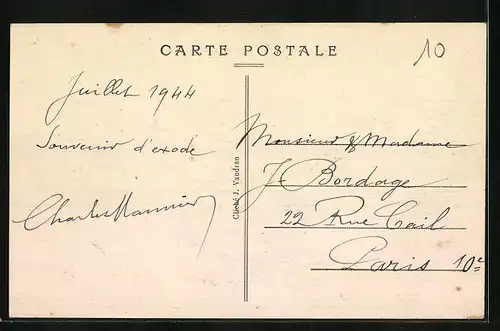 CARTE POSTALE
10
Juillet 1944
Souvenir d'exode
Charles Mannier
Cliché J. Vaudran
Monsieur & Madame
J. Bordage
22 Rue Cail
Paris 10e